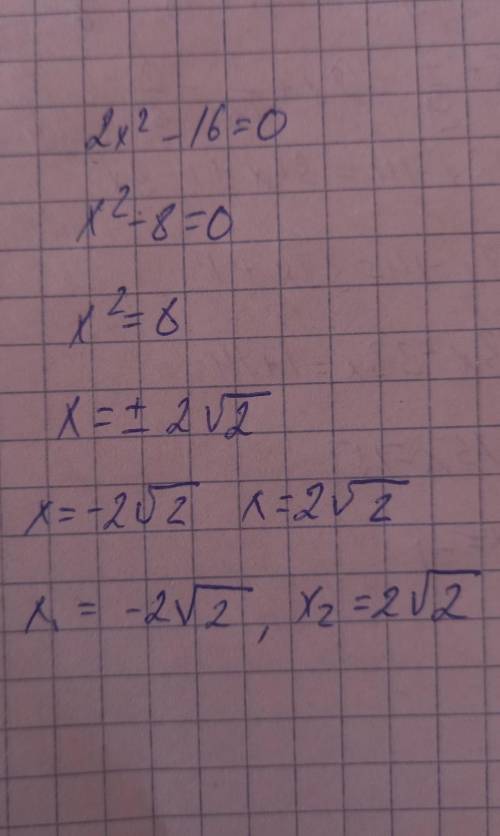 2x² - 16 = 0
x² - 8 = 0
x² = 8
x = ± 2√2
x = -2√2 x = 2√2
x₁ = -2√2 , x₂ = 2√2